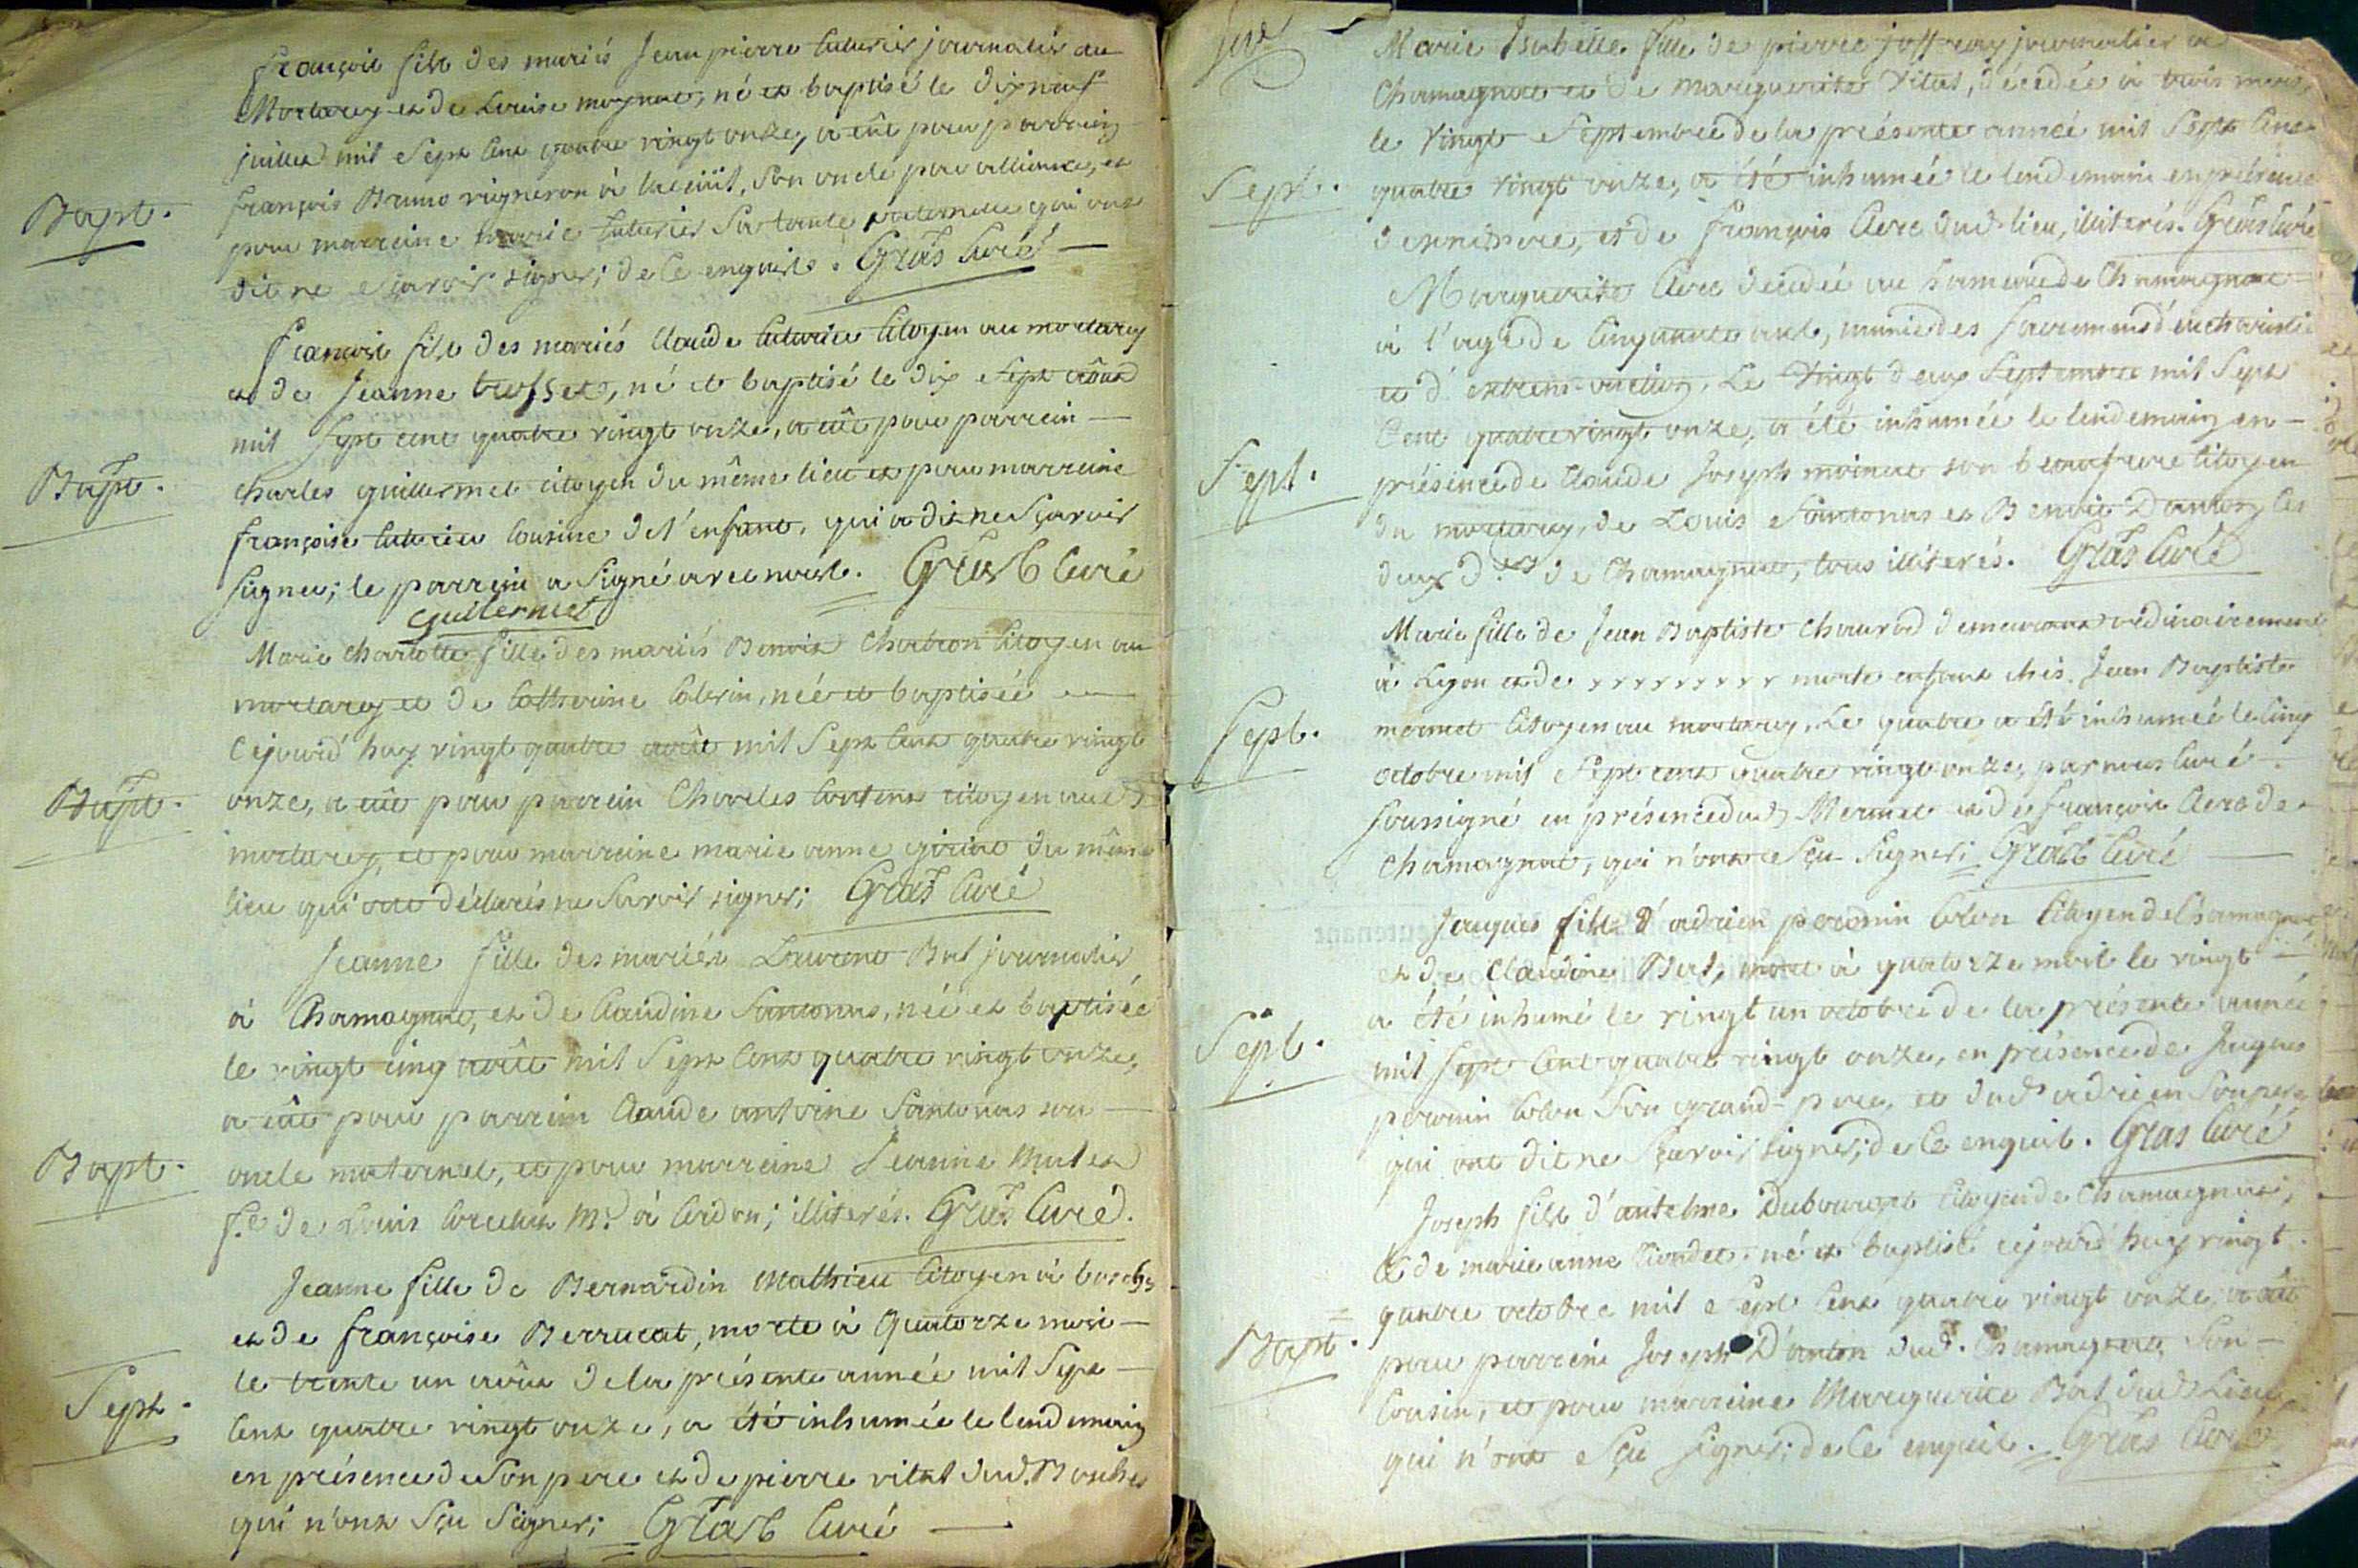 françois fils des mariés Jean pierre journalier au
Mortarey et de Louise moynat, né et baptisé le dix neuf
juillet mil sept cent quatre vingt onze, a eût pour parrain
Bapt.
françois Bruno vigneron à son oncle par alliance, et
pour marraine marie sa tante paternelle qui ont
dit ne sçavoir signer; de ce enquis. Gras Curé
françois fils des mariés Claude citoyen au mortarey
et de Jeanne né et baptisé le dix sept août
mil sept cent quatre vingt onze, a eût pour parrein
Bapt.
charles guillermet citoyen du même lieu et pour marreine
françoise cousine de l'enfant, qui a dit ne sçavoir
signer; le parrein a signé avec nous. Gras Curé
Guillermet
Marie charlotte fille des mariés Benoit Chatron citoyen au
mortarey et de Catherine née et baptisée
cejourd'huy vingt quatre août mil sept cent quatre vingt
Bapt.
onze, a eût pour parrein Charles citoyen aud
mortarey, et pour marreine marie anne du même
lieu qui ont déclarés ne savoir signer; Gras Curé
Jeanne fille des mariés Laurent But journalier
à Chamagnat, et de Claudine Santonas, née et baptisée
le vingt cinq août mil sept cent quatre vingt onze,
a eût pour parrein Claude antoine Santonas son
Bapt.
oncle maternel, et pour marreine Jeanne
fe de Louis md à Cordon; illiterés. Gras Curé.
Jeanne fille de Bernardin Mathieu citoyen à
et de françoise Berrucat, morte à quatorze mois
le trente un août de la présente année mil sept
Sept.
cent quatre vingt onze, a été inhumée le lendemain
en présence de son pere et de pierre vitat dud.
qui n'ont sçu signer; Gras Curé
Marie Isabelle fille de pierre joffray journalier à
Chamagnat et de marguerite Vitat, décedée à trois mois,
le vingt septembre de la présente année mil sept cent
Sept.
quatre vingt onze, a été inhumée le lendemain en présence
de son pere, et de françois dud. lieu, illiterés. Gras Curé
Marguerite décedée au hameau de Chamagnat
à l'age de cinquante ans, munie des sacremens d'eucharistie
et d'extreme-onction, Le vingt deux septembre mil sept
cent quatre vingt onze, a été inhumée le lendemain en
Sept.
présence de Claude Joseph son beaufrere citoyen
du mortarey, de Louis Santonas et Benoit Danton les
deux de Chamagnat, tous illiterés. Gras Curé
Marie fille de Jean Baptiste demeurant ordinairement
à Lyon et de morte enfant chés Jean Baptiste
Sept.
citoyen au mortarey, Le quatre a été inhumée le cinq
octobre mil sept cent quatre vingt onze, par nous curé
soussigné en présence dud et de françois de
Chamagnat, qui n'ont sçu signer; Gras Curé
Jacques fils d'adrien peronin citoyen de Chamagnat
et de Claudine But, mort à quatorze mois le vingt
Sept.
a été inhumé le vingt un octobre de la présente année
mil sept cent quatre vingt onze, en présence de Jacques
peronin son grand-pere, et dud adrien son pere
qui ont dit ne sçavoir signer; de ce enquis. Gras Curé
Joseph fils d'antelme Dubourget citoyen de Chamagnat,
et de marie anne né et baptisé cejourd'huy vingt
quatre octobre mil sept cent quatre vingt onze, a eût
Bapt.
pour parrein Joseph D'anton dud. Chamagnat, son
cousin, et pour marreine Marguerite But dud Lieu
qui n'ont sçu signer; de ce enquis. Gras Curé